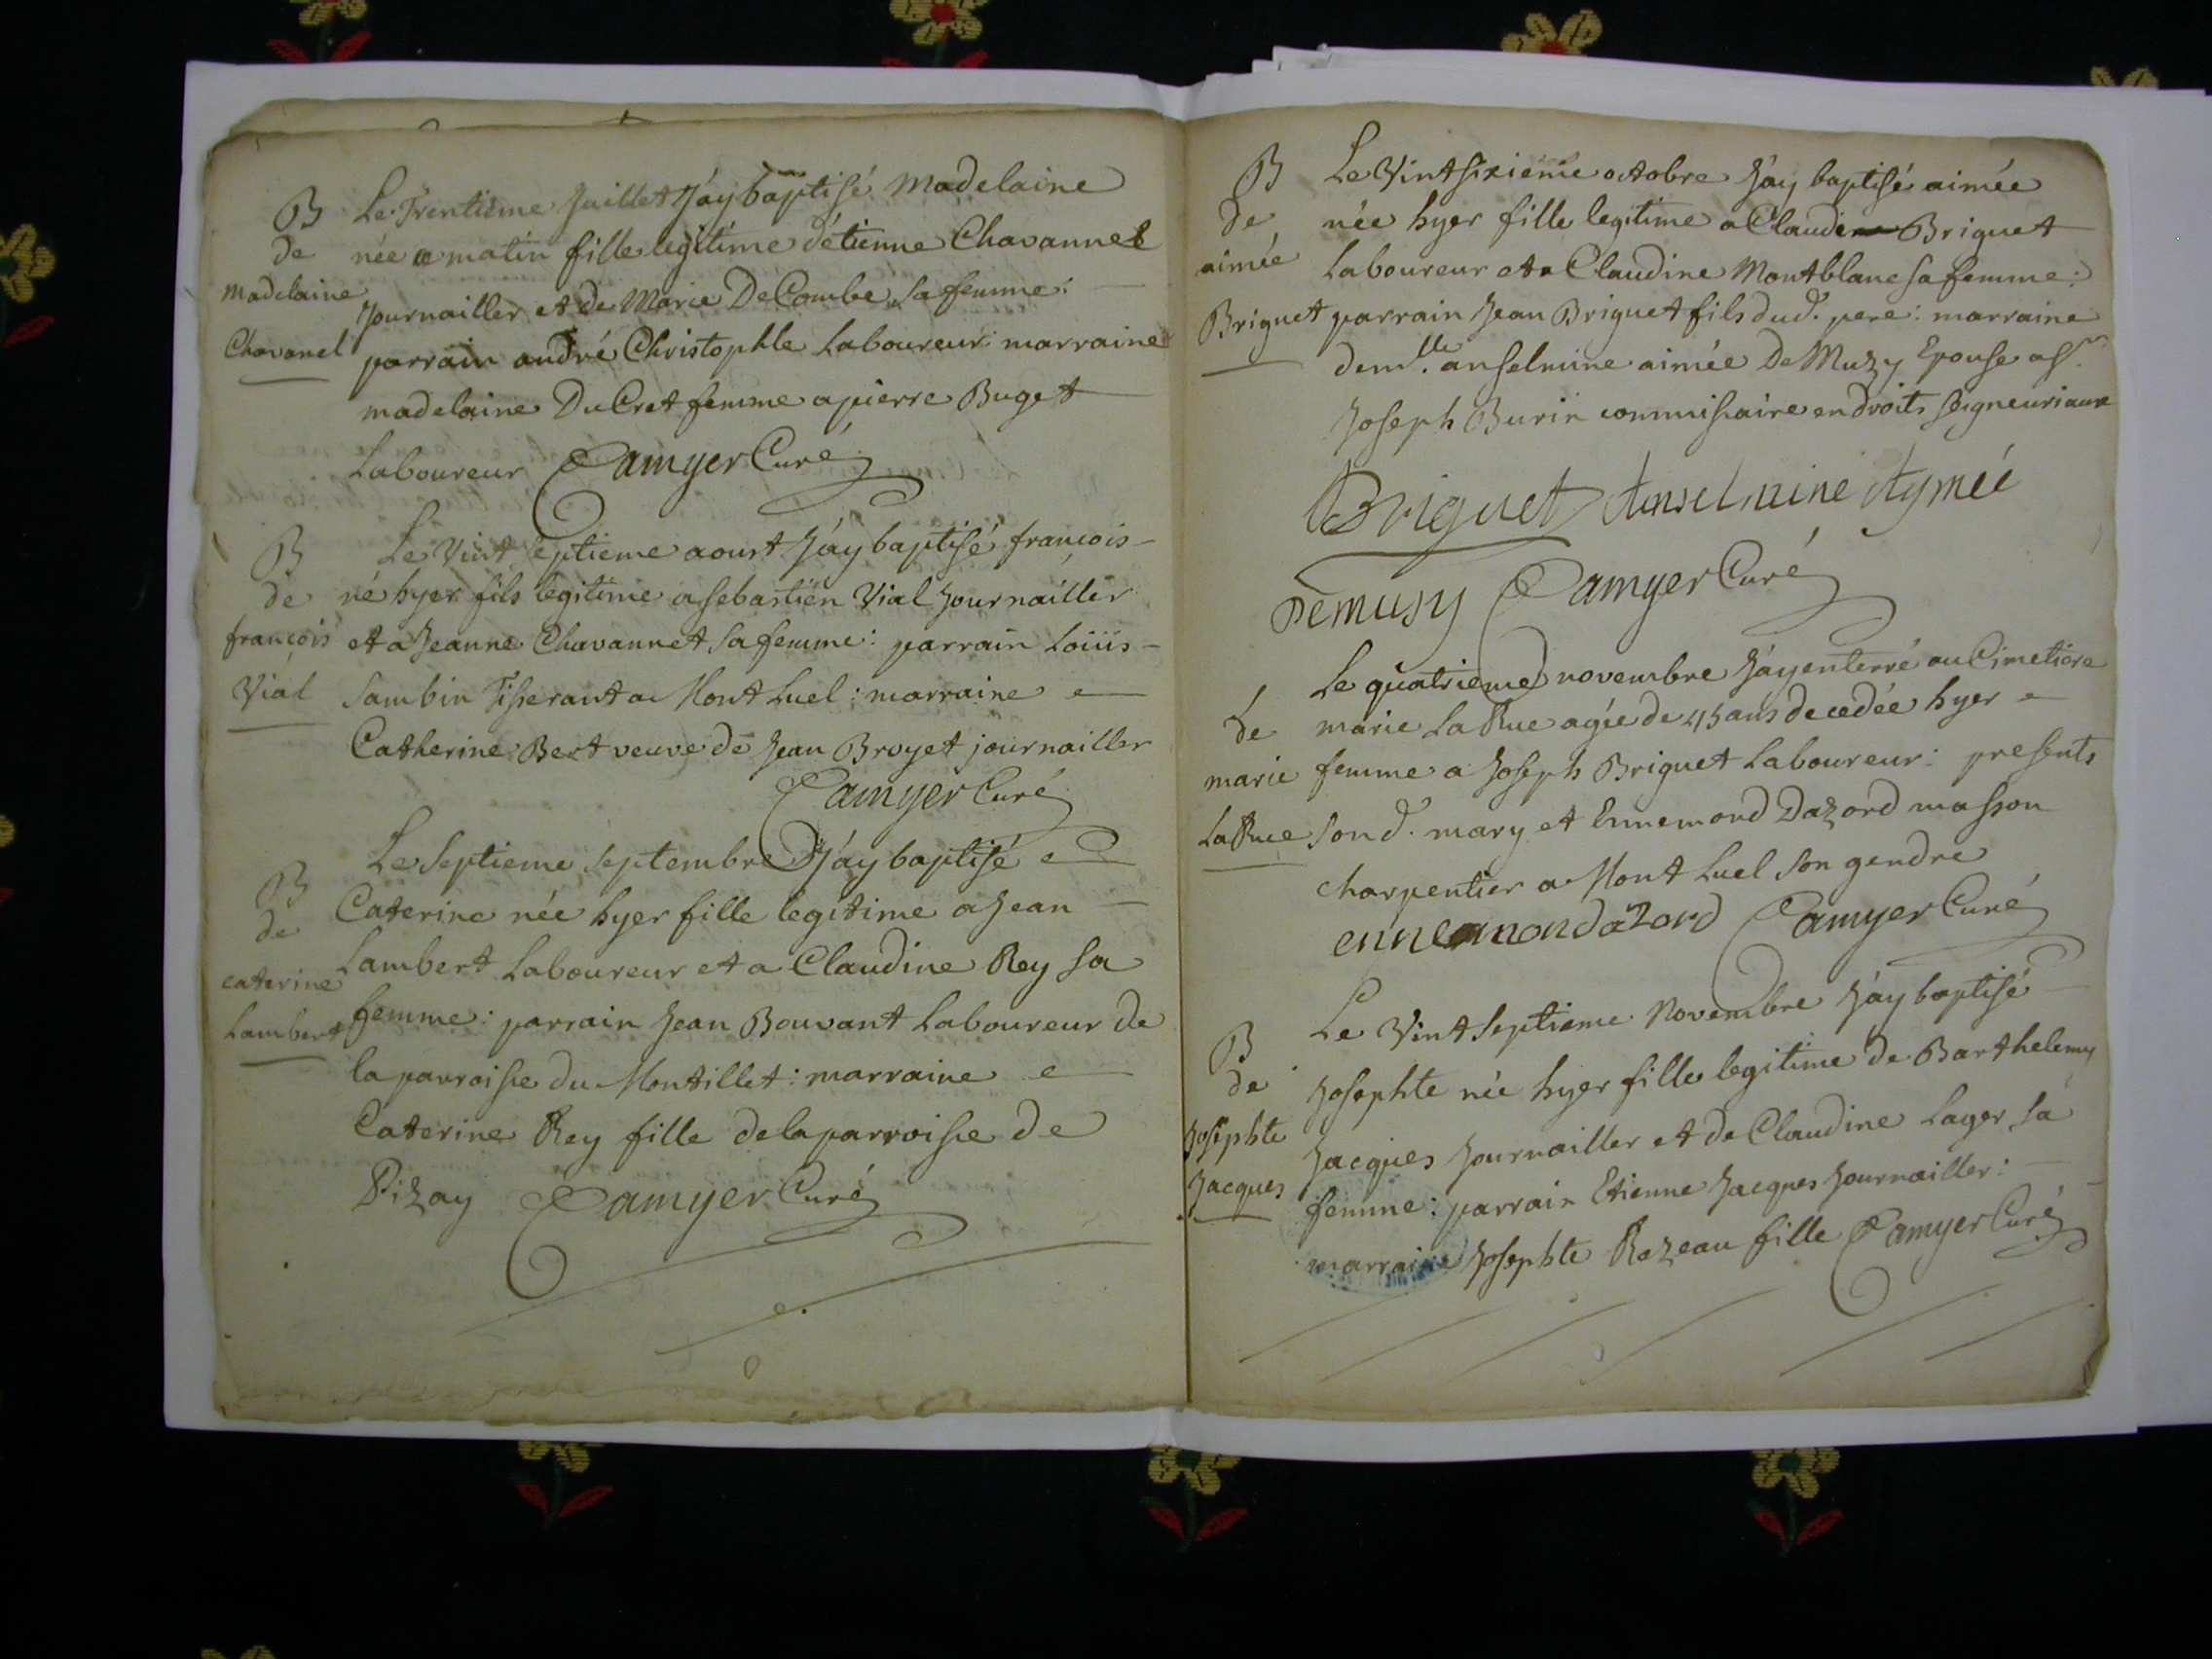 B
de
Madelaine
Chavanel
Le Trentième Juillet J'ay baptisé Madelaine
née ce matin fille legitime d'étienne Chavannel
Journailler et de Marie DeCombe sa femme:
parrain andré Christophle Laboureur marraine
madelaine DuCret femme a pierre Buget
Laboureur Camyer Curé
B
de
françois
Vial
Le Vint septieme aoust J'ay baptisé françois
né hyer fils legitime a sebastien Vial Journailler
et a Jeanne Chavannet sa femme: parrain Loüis
Sambin Tisserant a Mont Luel: marraine
Catherine Bert veuve de Jean Broyet journailler
Camyer Curé
B
de
caterine
Lambert
Le Septieme Septembre J'ay baptisé
Caterine née hyer fille legitime a Jean
Lambert Laboureur et a Claudine Rey sa
femme: parrain Jean Bouvant Laboureur de
la parroisse du Montillet: marraine
Caterine Rey fille de la parroisse de
Pizay Camyer Curé
B
de
aimée
Briguet
Le Vint sixieme octobre J'ay baptisé aimée
née hyer fille legitime a Claude Briguet
Laboureur et a Claudine Montblanc sa femme:
parrain Jean Briguet fils dud. pere: marraine
demlle. anselmine aimée De Muzy Epouse a sr.
Joseph Burin commissaire en droits seigneuriaux
Briguet Anselmine Aymée
Demusy Camyer Curé
de
marie
LaRue
Le quatrieme novembre J'ay enterré au Cimetiere
marie LaRue agée de 45 ans decedée hyer
femme a Joseph Briguet Laboureur: presents
sond. mary et Ennemond Dazord masson
charpentier a Mont Luel son gendre
ennemond dazord Camyer Curé
B
de
Josephte
Jacques
Le Vint Septieme Novembre J'ay baptisé
Josephte née hyer fille legitime de Barthelemy
Jacques Journailler et de Claudine Lager sa
femme: parrain Etienne Jacques Journailler:
marraine Josephte Razeau fille Camyer Curé